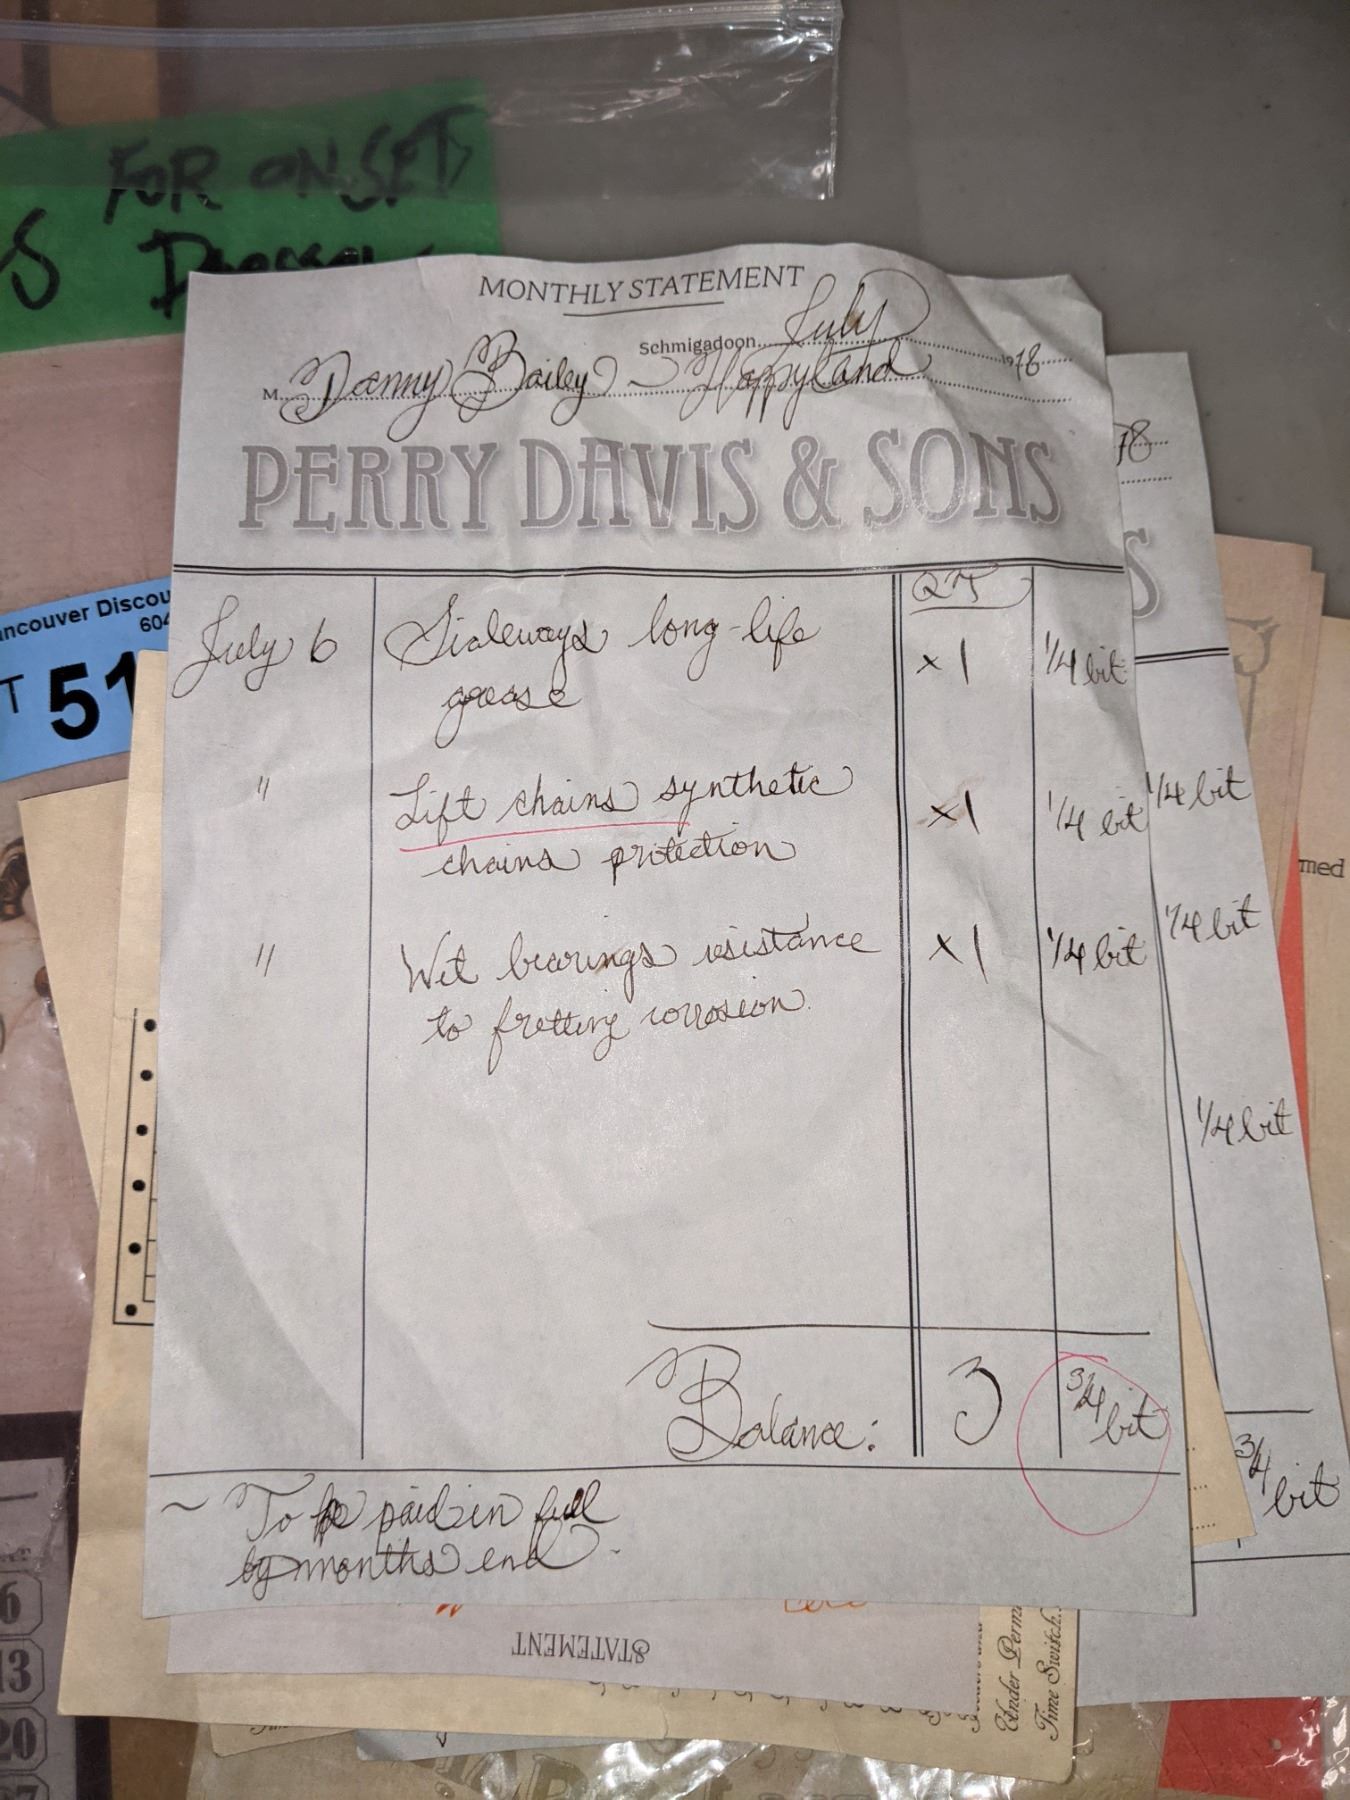 FOR ONSET
MONTHLY STATEMENT
Schmigadoon July 1918
M. Danny Bailey ~ Happyland
PERRY DAVIS & SONS
QTY
July 6 Sideways long-life x1 1/4 bit
grease
" Lift chains synthetic x1 1/4 bit
chains protection
" Wet bearings resistance x1 1/4 bit
to fretting corrosion.
Balance: 3 3/4 bit
~ To be paid in full
by months end ~
18
S
1/4 bit
1/4 bit
1/4 bit
3/4 bit
med
ancouver Discou
604
T 51
STATEMENT
Under Perm
Time Switch
6
13
20
27